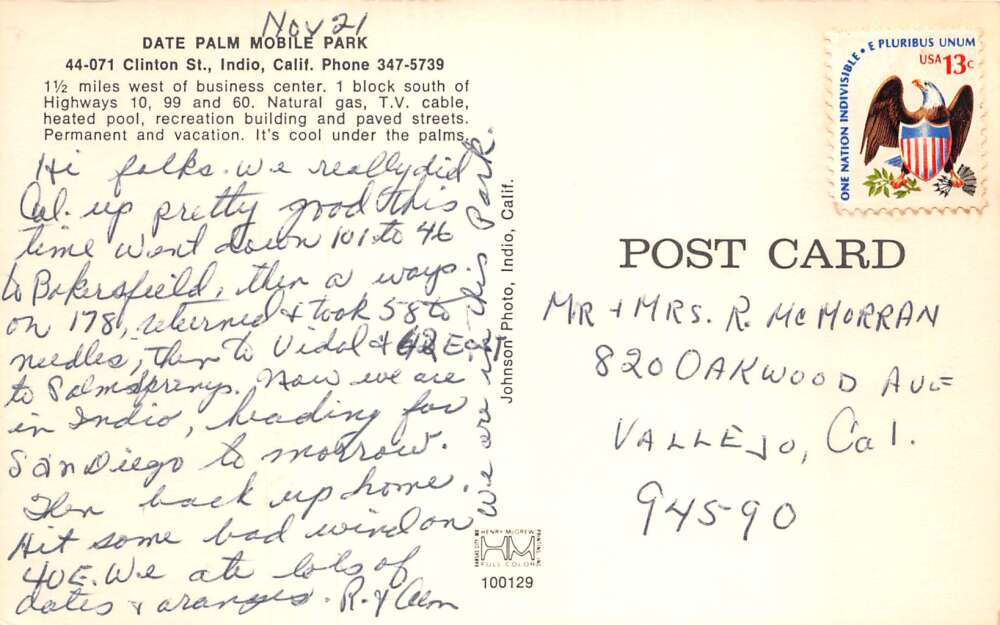 Nov 21
DATE PALM MOBILE PARK
44-071 Clinton St., Indio, Calif. Phone 347-5739
1½ miles west of business center. 1 block south of
Highways 10, 99 and 60. Natural gas, T.V. cable,
heated pool, recreation building and paved streets.
Permanent and vacation. It's cool under the palms.
Hi folks. We really did
Cal. up pretty good this
time went down 101 to 46
to Bakersfield, then a ways
on 178, returned + took 58 to
needles, then to Vidal + 62 East
to Palmsprings. Now we are
in Indio, heading for
San Diego to morrow.
Then back up home.
Hit some bad wind on
40 E. We ate lots of
dates + oranges. R. y
We are in this Park.
Johnson Photo, Indio, Calif.
KANSAS CITY, MO
HENRY McGREW
PRINTING, INC.
HM
FULL COLOR
100129
ONE NATION INDIVISIBLE • E PLURIBUS UNUM
USA 13c
POST CARD
MR + MRS. R. McMORRAN
820 OAKWOOD AVE
VALLEJO, Cal.
94590